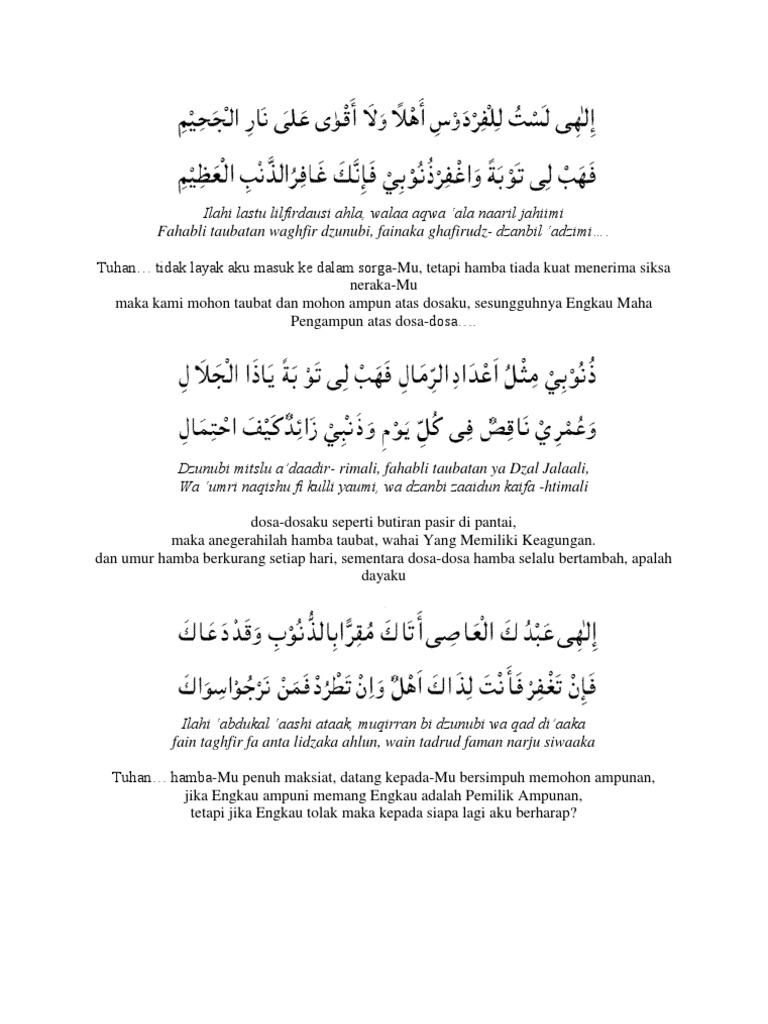 إِلٰهِى لَسْتُ لِلْفِرْدَوْسِ أَهْلًا وَلَا أَقْوٰى عَلىَ نَارِ الْجَحِيْمِ
فَهَبْ لِى تَوْبَةً وَاغْفِرْذُنُوْبِيْ فَإِنَّكَ غَافِرُالذَّنْبِ الْعَظِيْمِ
Ilahi lastu lilfirdausi ahla, walaa aqwa ‘ala naaril jahiimi
Fahabli taubatan waghfir dzunubi, fainaka ghafirudz- dzanbil ‘adzimi….
Tuhan… tidak layak aku masuk ke dalam sorga-Mu, tetapi hamba tiada kuat menerima siksa
neraka-Mu
maka kami mohon taubat dan mohon ampun atas dosaku, sesungguhnya Engkau Maha
Pengampun atas dosa-dosa….
ذُنُوْبِيْ مِثْلُ اَعْدَادِالرِّمَالِ فَهَبْ لِى تَوْ بَةً يَاذَا الْجَلَا لِ
وَعُمْرِيْ نَاقِصٌ فِى كُلِّ يَوْمٍ وَذَنْبِيْ زَائِدٌكَيْفَ احْتِمَالِ
Dzunubi mitslu a‘daadir- rimali, fahabli taubatan ya Dzal Jalaali,
Wa ‘umri naqishu fi kulli yaumi, wa dzanbi zaaidun kaifa -htimali
dosa-dosaku seperti butiran pasir di pantai,
maka anegerahilah hamba taubat, wahai Yang Memiliki Keagungan.
dan umur hamba berkurang setiap hari, sementara dosa-dosa hamba selalu bertambah, apalah
dayaku
إِلٰهِى عَبْدُ كَ الْعَاصِى أَتَاكَ مُقِرًّابِالذُّنُوْبِ وَقَدْدَعَاكَ
فَإِنْ تَغْفِرْ فَأَنْتَ لِذَاكَ اَهْلٌ وَاِنْ تَطْرُدْفَمَنْ نَرْجُوْاسِوَاكَ
Ilahi ‘abdukal ‘aashi ataak, muqirran bi dzunubi wa qad di‘aaka
fain taghfir fa anta lidzaka ahlun, wain tadrud faman narju siwaaka
Tuhan… hamba-Mu penuh maksiat, datang kepada-Mu bersimpuh memohon ampunan,
jika Engkau ampuni memang Engkau adalah Pemilik Ampunan,
tetapi jika Engkau tolak maka kepada siapa lagi aku berharap?